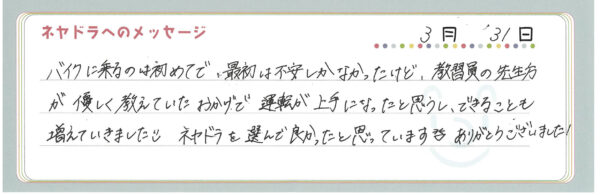 ネヤドラへのメッセージ 3月 31日
バイクに乗るのは初めてで、最初は不安しかなかったけど、教習員の先生方
が優しく教えていたおかげで運転が上手になったと思うし、できることも
増えていきました ネヤドラを選んで良かったと思っています ありがとうございました!